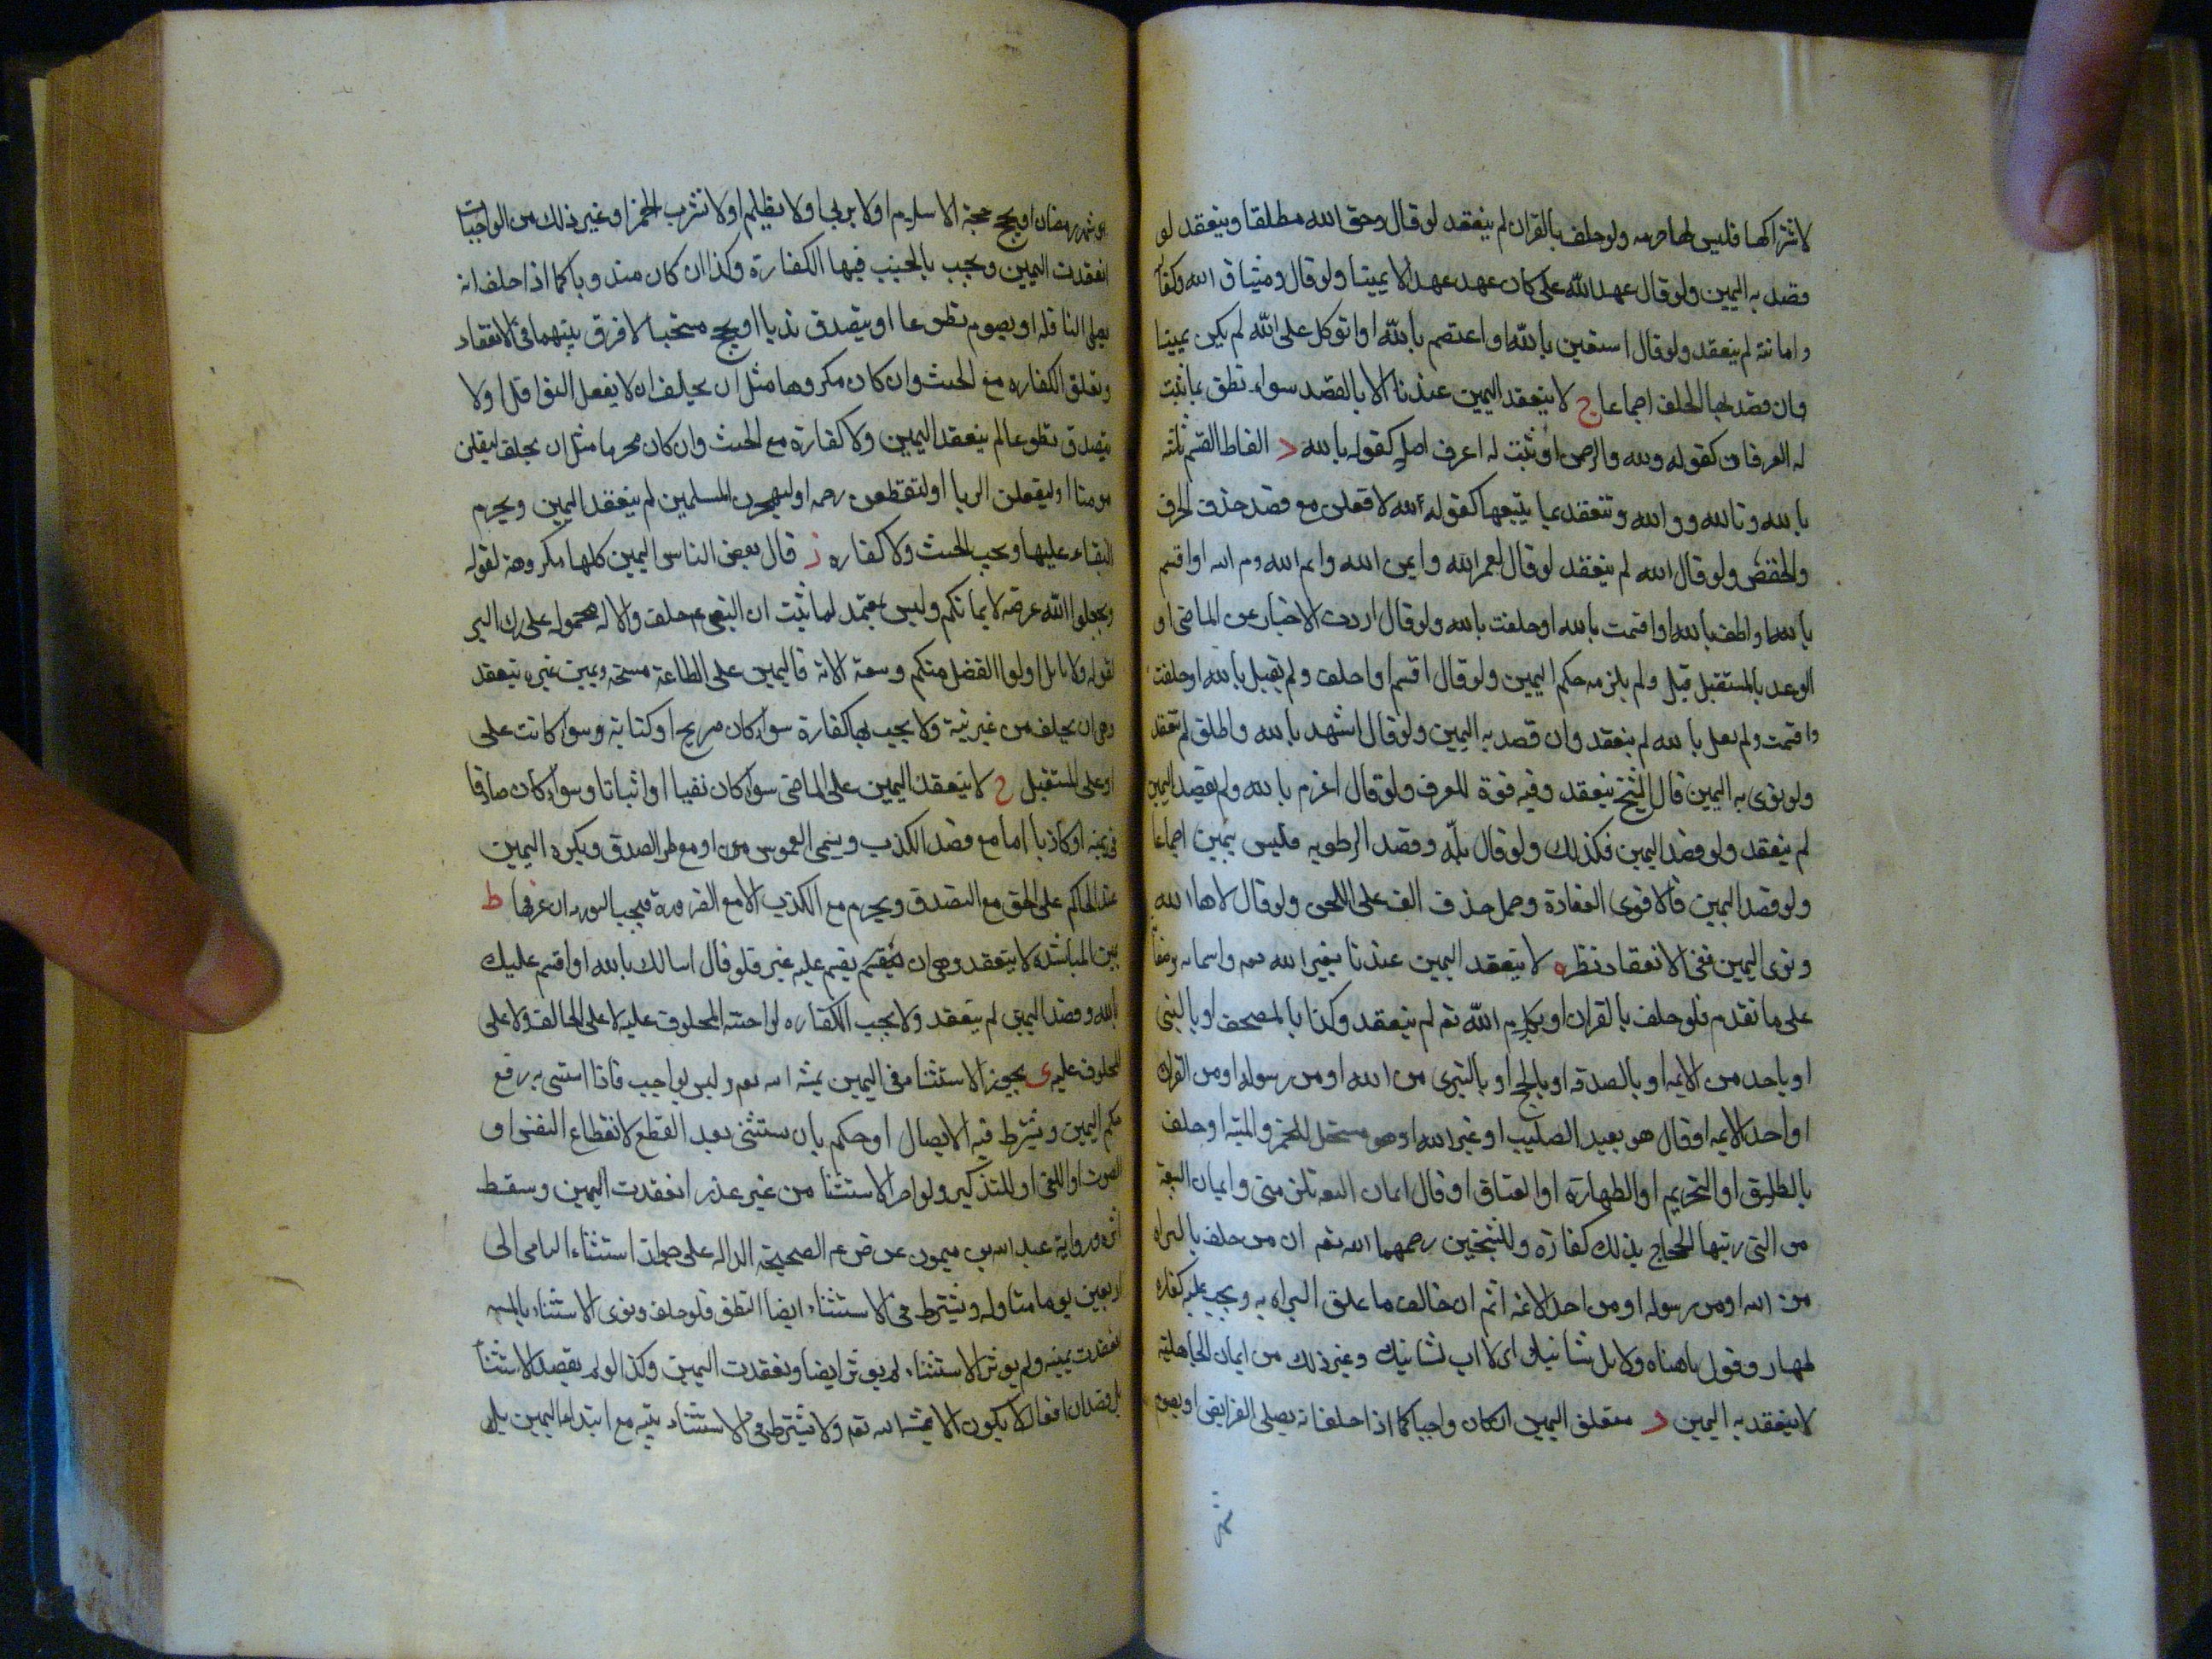 لاشتراكها فليس لها حرمه ولو حلف بالقران لم ينعقد لو قال وحق الله مطلقا وينعقد لو
قصد به اليمين ولو قال عهد الله على كان عهد عهدا لا يمينا ولو قال وميثاق الله وكفا
وامانته لم ينعقد ولو قال استعين بالله او اعتصم بالله او اتوكل على الله لم يكن يمينا
وان قصد بها الحلف اجماعا ج لا ينعقد اليمين عندنا الا بالقصد سواء نطق بما ثبت
له العرفان كقوله والله والرحمن او ثبت له اعرف اصل كقوله بالله د الفاظ القسم ثلثه
بالله وتالله ووالله وتنعقد بما يتبعها كقوله الله لافعلن مع قصد حذف الحرف
والخفض ولو قال الله لم ينعقد لو قال لعمر الله وايمن الله وايم الله وم الله او اقسم
بالله او احلف بالله او اقسمت بالله او حلفت بالله ولو قال اردت الاخبار عن الماضى او
الوعد بالمستقبل قبل ولم يلزمه حكم اليمين ولو قال اقسم او احلف ولم يقل بالله او حلفت
واقسمت ولم يقل بالله لم ينعقد وان قصد به اليمين ولو قال اشهد بالله واطلق لم تنعقد
ولو نوى به اليمين قال الشيخ ينعقد وفيه قوة للعرف ولو قال اعزم بالله ولم يقصد اليمين
لم ينعقد ولو قصد اليمين فكذلك ولو قال بله وقصد الرطوبه فليس بيمين اجماعا
ولو قصد اليمين فالاقوى انعقادة وحمل حذف الف على اللحن ولو قال لاها الله
ونوى اليمين ففى الانعقاد نظر ه لا ينعقد اليمين عندنا بغير الله تعم واسمائه وصفا
على ما تقدم فلو حلف بالقران او بكلام الله تعم لم ينعقد وكذا بالمصحف او بالنبى
او باحد من الايمه او بالصدقه او بالحج او بالتبرى من الله او من رسوله او من القران
او احد الايمه او قال هو يعبد الصليب او غير الله او هو مستحل للخمر والميته او حلف
بالطلاق او التحريم او الطهارة او العتاق او قال ايمان البيعه تلزمنى وايمان البيعة
من التى رتبها الحجاج بذلك كفارة وللشيخين رحمهما الله تعم ان من حلف بالبراه
من الله او من رسوله او من احد الائمه اثم ان خالف ما علق البراه به ويجب عليه كفاره
ظهار وقول ياهناه ولا بل شانيك اى لا اب لشانيك وغير ذلك من ايمان الجاهلية
لا ينعقد به اليمين و متعلق اليمين ان كان واجبا كما اذا حلف انه يصلى الفرايض او يصوم
شهر رمضان او يحج حجة الاسلام او لا يزنى او لا يظلم او لا يشرب الخمر او غير ذلك من الواجبات
انعقدت اليمين ويجب بالحنث فيها الكفارة وكذا ان كان مندوبا كما اذا حلف انه
يصلى النافله او يصوم تطوعا او يتصدق ندبا او يحج مستحبا لا فرق بينهما فى الانعقاد
وتعلق الكفاره مع الحنث وان كان مكروها مثل ان يحلف ان لا يفعل النوافل او لا
يتصدق تطوعا لم ينعقد اليمين ولا كفارة مع الحنث وان كان محرما مثل ان يحلف ليقتلن
مومنا او ليفعلن الربا او لتقطعن رحمه او ليهجرن المسلمين لم ينعقد اليمين ويحرم
البقاء عليها ويجب الحنث ولا كفاره ز قال بعض الناس اليمين كلها مكروهة لقوله
ولا تجعلوا الله عرضه لايمانكم وليس بمعتمد لما ثبت ان النبى عم حلف والايه محموله على ترك البر
لقوله ولا ياتل اولوا الفضل منكم وسعة الايه فاليمين على الطاعة مستحبه ويمين غيره ينعقد
وهى ان يحلف من غير نية ولا يجب بها كفارة سواء كان صريحا او كناية وسواء كانت على
او على المستقبل ح لا ينعقد اليمين على الماضى سواء كان نفيا او اثباتا وسواء كان صادقا
فى يمينه او كاذبا اما مع قصد الكذب ويسمى الغموس او مع ظن الصدق ويكره اليمين
عند الحاكم على الحق مع التصدق ويحرم مع الكذب الا مع الضرورة فيجب التوريه ان عرفها ط
يمين المناشدة لا ينعقد وهى ان يقسم عليه غير فلو قال اسالك بالله او اقسم عليك
بالله وقصد اليمين لم ينعقد ولا يجب الكفاره لو احنثه المحلوف عليه لا على الحالف ولا على
المحلوف عليه ى يجوز الاستثناء فى اليمين بمشيه الله تعم وليس بواجب فاذا استثنى به رفع
حكم اليمين ويشترط فيه الاتصال او حكمه بان يستثنى بعد القطع لانقطاع النفس او
الصوت او اللغى او للتذكير ولو اخر الاستثنا من غير عذر انعقدت اليمين وسقط
اثره ورواية عبد الله بن ميمون عن ص عم الصحيحة الداله على جواز استثناء الناسى الى
اربعين يوما متاوله ويشترط فى الاستثناء ايضا النطق فلو حلف ونوى الاستثناء بالمشيه
انعقدت يمينه ولم يوثر الاستثناء لم يوثر ايضا وتعقدت اليمين وكذا لو لم يقصد الاستثنا
بل قصد ان افعاله لا يكون الا بمشيه الله تعم ولا يشترط فى الاستثناء نيته مع ابتداء اليمين بل
شهر